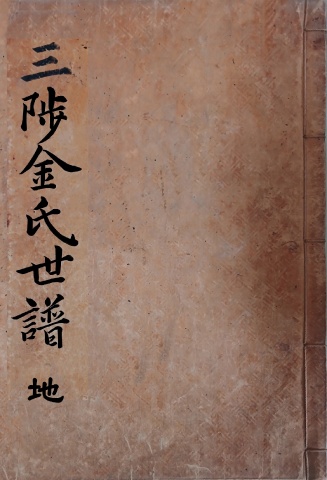 三陟金氏世譜 地